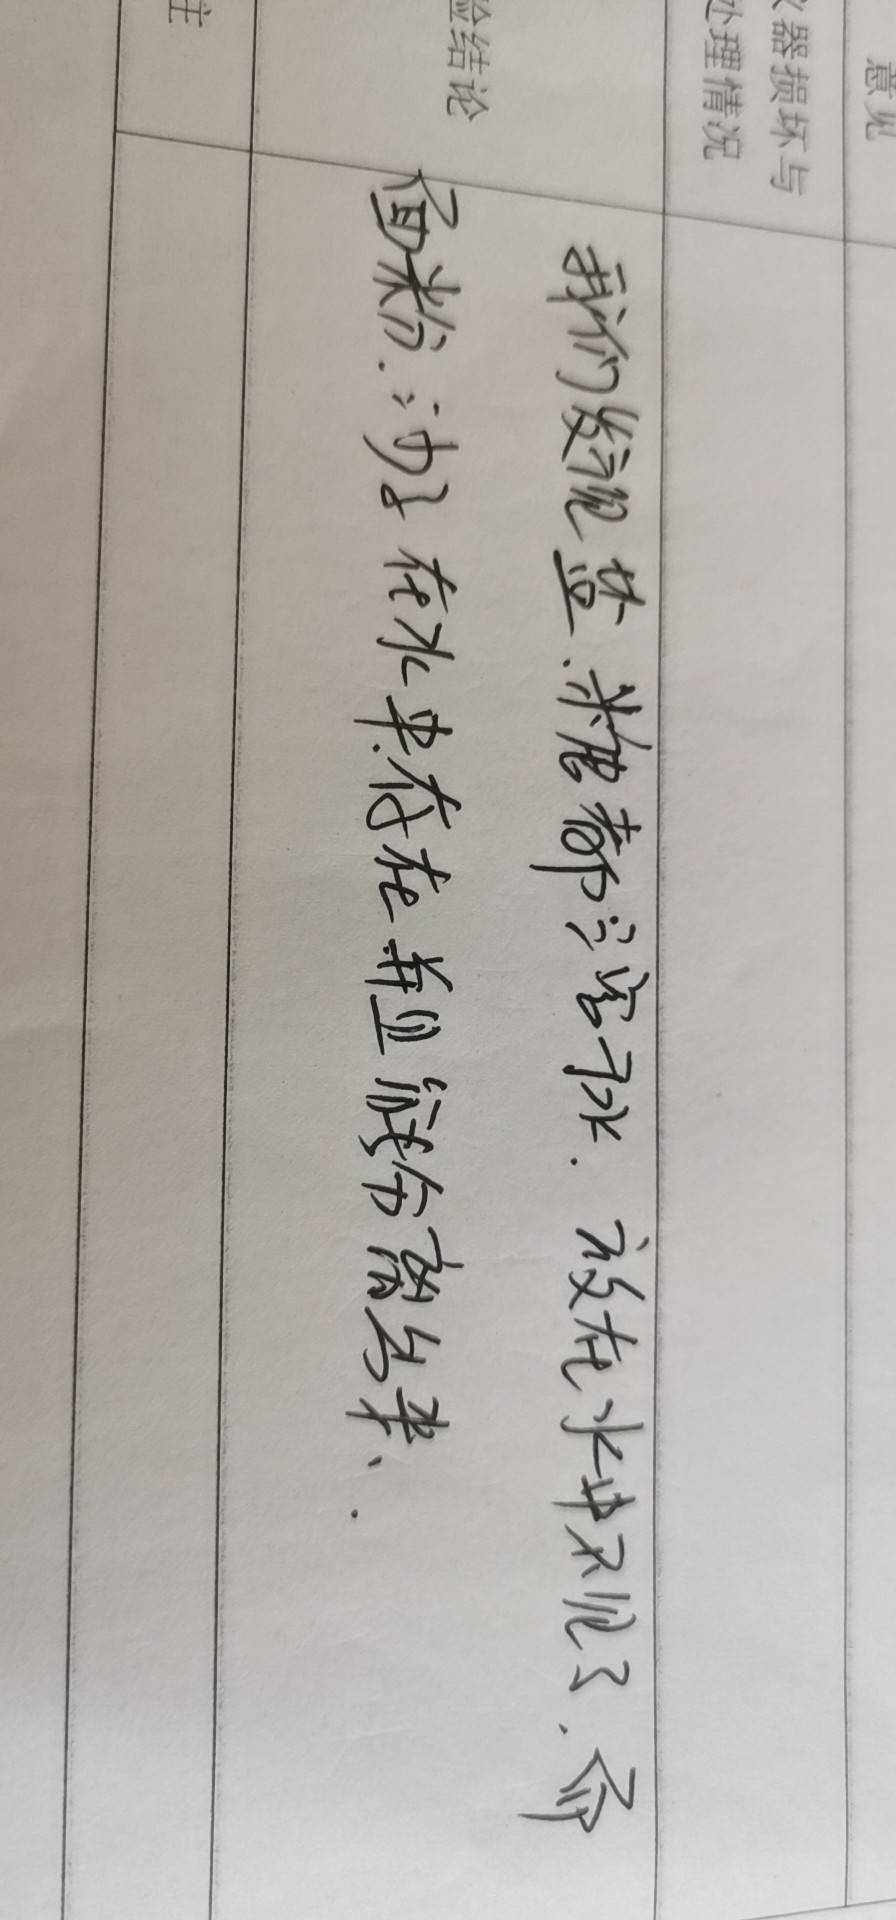 意见
仪器损坏与
处理情况
验结论
我们发现盐、糖都溶于水.放在水中不见了.而
面粉.沙子在水中存在并且能分离出来、.
注